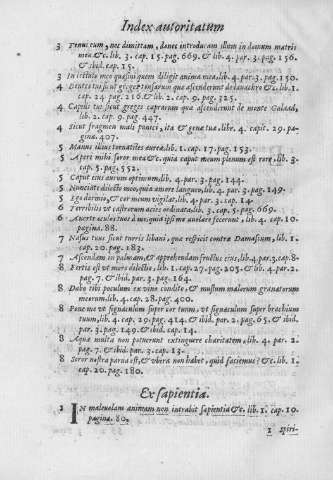 Index autoritatum
3 Tenui eum, nec dimittam, donec introducam illum in domum matris
meæ &c. lib. 3. cap. 15. pag. 669. & lib. 4. par. 3. pag. 156.
& ibid. cap. 15.
3 In lectulo meo quæsivi quem diligit anima mea, lib. 4. par. 3. pag. 150.
4 Dentes tui sicut greges tonsarum quæ ascenderunt de lavachro &c. lib. 1.
cap. 24. pag. 216. & lib. 2. cap. 9. pag. 325.
4 Capilli tui sicut greges caprarum quæ ascenderunt de monte Galaad,
lib. 2. cap. 9. pag. 447.
4 Sicut fragmen mali punici, ita & genæ tuæ, liber. 4. capit. 29. pa-
gina. 407.
5 Manus illius tornatiles aureæ, lib. 1. cap. 17. pag. 153.
5 Aperi mihi soror mea &c. quia caput meum plenum est rore, lib. 3.
cap. 5. pag. 552.
5 Caput eius aurum optimum, lib. 4. par. 3. pag. 143.
5 Nunciate dilecto meo, quia amore langueo, lib. 4. par. 3. pag. 149.
5 Ego dormio, & cor meum vigilat, lib. 4. par. 3. pag. 14
6 Terribilis vt castrorum acies ordinata, lib. 3. cap. 5. pag. 669.
6 Auerte oculos tuos à me, quia ipsi me auolare fecerunt, lib. 4. cap. 10.
pagina. 88.
7 Nasus tuus sicut turris libani, quæ respicit contra Damascum, lib. 1.
cap. 20. pag. 182.
7 Ascendam in palmam, & apprehendam fructus eius, lib. 4. par. 3. cap. 8.
8 Fortis est vt mors dilectio, lib. 1. cap. 27. pag. 205. & lib. 4. par. 2.
pag. 7. & ibid. par. 3. pag. 164.
8 Dabo tibi poculum ex vino condito, & mustum malorum granatorum
meorum, lib. 4. cap. 28. pag. 400.
8 Pone me vt signaculum super cor tuum, vt signaculum super brachium
tuum, lib. 4. cap. 29. pag. 414. & ibid. par. 2. pag. 65. & ibid.
par. 3. pag. 149. & ibid. cap. 14.
8 Aqua multa non potuerunt extinguere charitatem, lib. 4. par. 2.
pag. 7. & ibid. par. 3. cap. 13.
8 Soror nostra parua est, & vbera non habet, quid faciemus? &c. lib. 1.
cap. 20. pag. 180.
Ex sapientia.
1 IN maleuolam animam non intrabit sapientia &c. lib. 1. cap. 10.
pagina. 80.
1 spiri-